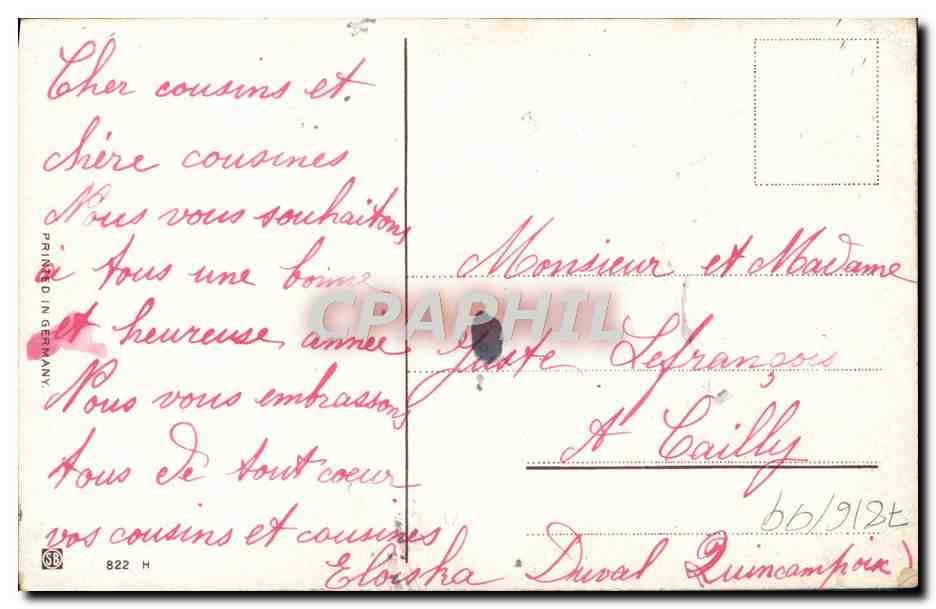 Cher cousins et
chère cousines
Nous vous souhaitons
à tous une bonne
et heureuse année
Nous vous embrassons
tous de tout coeur
vos cousins et cousines
Eloiska Duval Quincampoix
Monsieur et Madame
Juste Lefrançois
A Cailly
PRINTED IN GERMANY.
SB
822 H
CPAPHIL